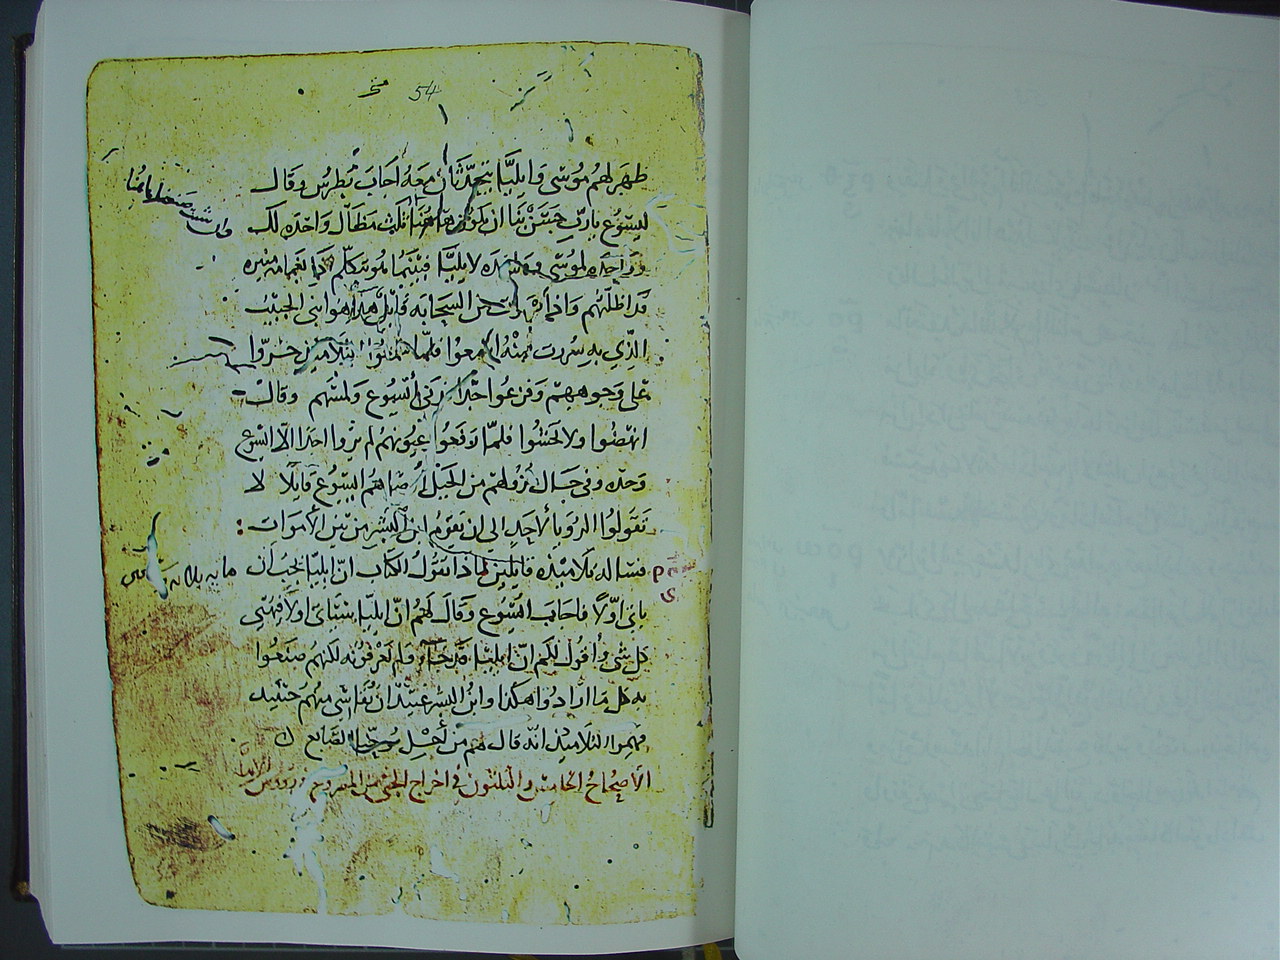 54
ظهر لهم موسى وايليا يتحدثان معه اجاب بطرس وقال
ليسوع يارب حسن بنا ان نكون هاهنا ثلث مظال واحده لك
وواحده لموسى وواحده لايليا فبينما هو يتكلم اذا بغمامه نيره
قد اظلتهم واذا صوت من السحابه قايل هذا هو ابني الحبيب
الذي به سررت منه اسمعوا فلما سمعوا التلاميذ خروا
على وجوههم وفزعوا جدا اتى يسوع ولمسهم وقال
انهضوا ولا تخشوا فلما رفعوا عيونهم لم يروا احدا الا يسوع
وحده وفي حال نزولهم من الجبل اوصاهم اليسوع قايلا لا
تقولوا الرويا لاحد الي ان يقوم ابن البشر من بين الاموات :
فساله تلاميذه قايلين لماذا تقول الكتاب ان ايليا يجب ان
ياتي اولا فاجاب اليسوع وقال لهم ان ايليا سياتي اولا فيهيى
كل شي واقول لكم ان ايليا قد جا ولم يعرفونه لكنهم صنعوا
به كل ما ارادوا هكذا وابن البشر عتيد ان يقاسي منهم حينيد
فهموا التلاميذ انه قال لهم من اجل يوحنا الصابغ
الاصحاح الخامس والثلثون في اخراج الجني من المصروع